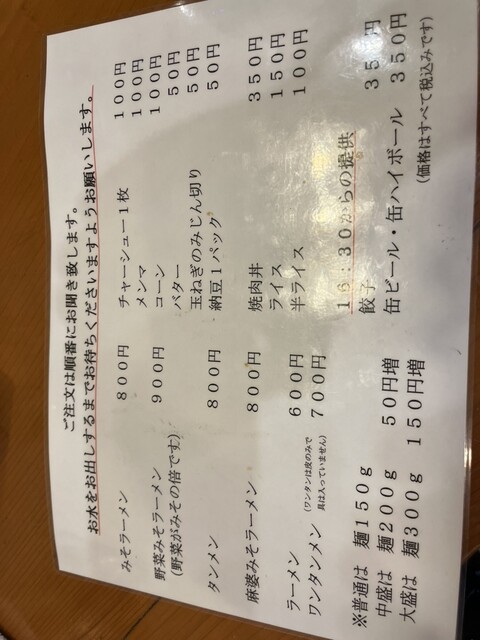 ご注文は順番にお聞き致します。
お水をお出しするまでお待ちくださいますようお願いします。
みそラーメン ８００円
野菜みそラーメン ９００円
(野菜がみその倍です)
タンメン ８００円
麻婆みそラーメン ８００円
ラーメン ６００円
ワンタンメン (ワンタンは皮のみで具は入っていません) ７００円
チャーシュー１枚 １００円
メンマ １００円
コーン １００円
バター ５０円
玉ねぎのみじん切り ５０円
納豆１パック ５０円
焼肉丼 ３５０円
ライス １５０円
半ライス １００円
１６：３０からの提供
餃子 ３５０円
缶ビール・缶ハイボール ３５０円
(価格はすべて税込みです)
※普通は 麺１５０ｇ
中盛は 麺２００ｇ ５０円増
大盛は 麺３００ｇ １５０円増